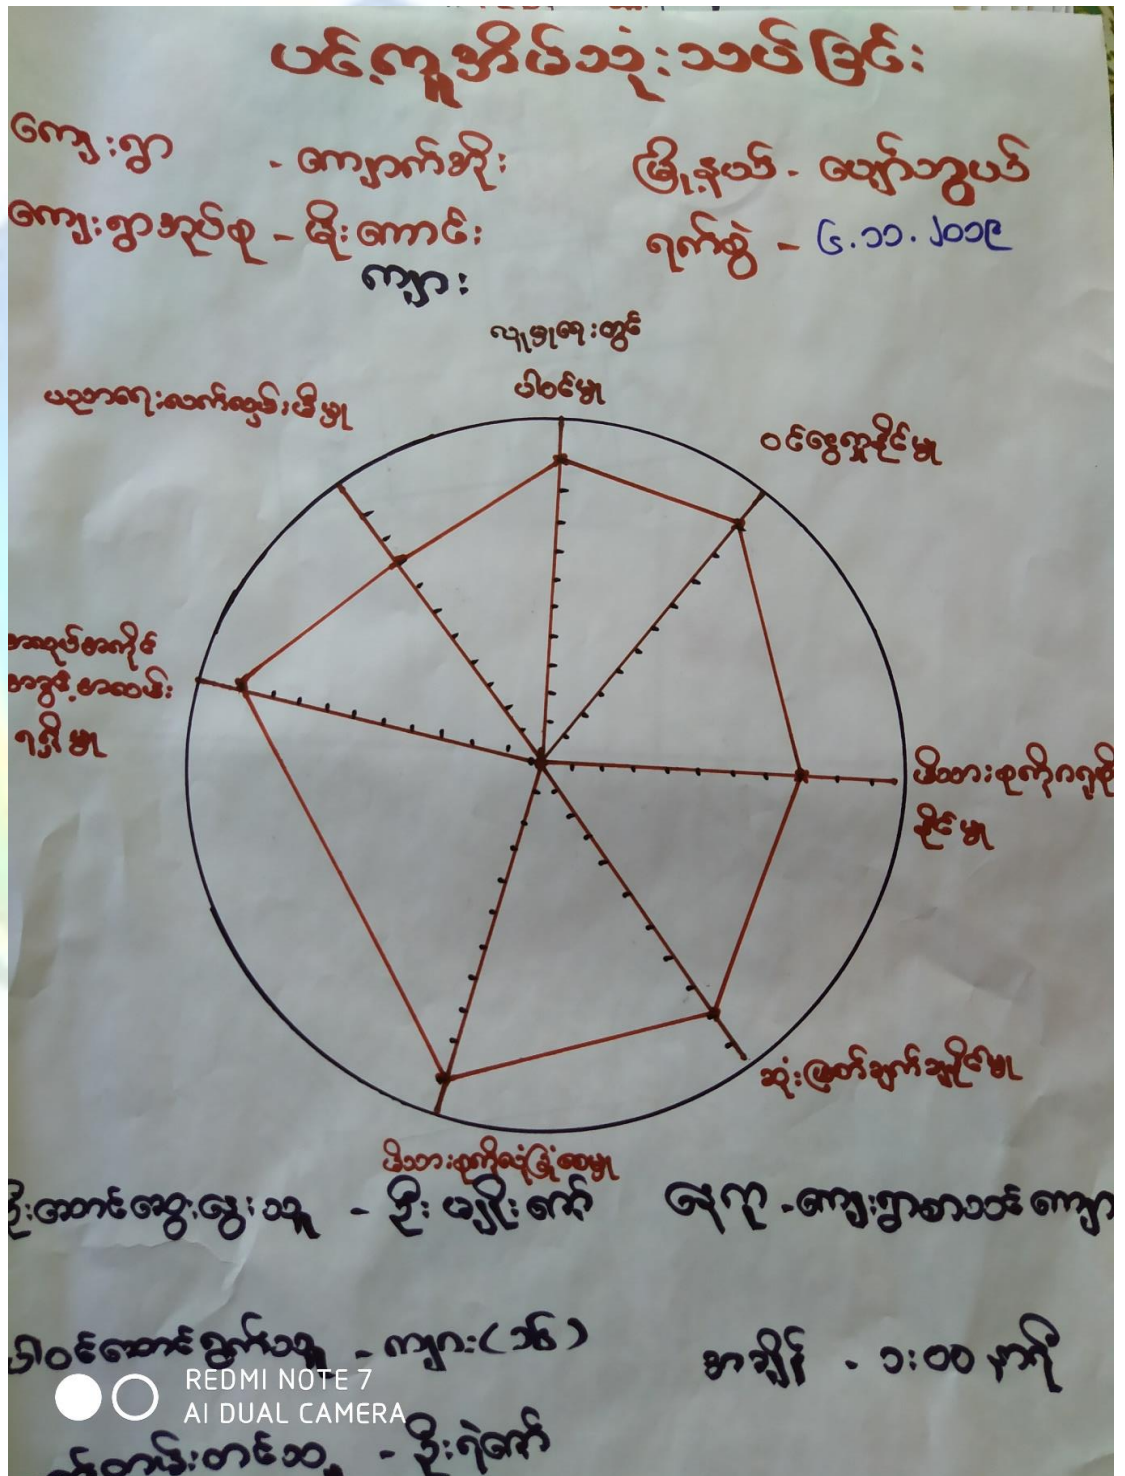 ပင့်ကူအိမ်သုံးသပ်ခြင်း
ကျေးရွာ - ကျောက်အိုး မြို့နယ် - ပျော်ဘွယ်
ကျေးရွာအုပ်စု - မိုးကောင်း ရက်စွဲ - ၆.၁၁.၂၀၁၉
ကျား
လူမှုရေးတွင်
ပါဝင်မှု
ပညာရေးလက်လှမ်းမီမှု
ဝင်ငွေရှာနိုင်မှု
အလုပ်အကိုင်
အခွင့်အလမ်း
ရရှိမှု
မိသားစုကိုဂရုစို
နိုင်မှု
ဆုံးဖြတ်ချက်ချနိုင်မှု
မိသားစုကိုလုံခြုံစေမှု
ဦးဆောင်ဆွေးနွေးသူ - ဦးမျိုးဇော် နေရာ - ကျေးရွာစာသင်ကျော
ပါဝင်ဆောင်ရွက်သူ - ကျား(၁၆)
အချိန် - ၁:၀၀ နာရီ
REDMI NOTE 7
AI DUAL CAMERA
မှတ်တမ်းတင်သူ - ဦးရဲဇော်